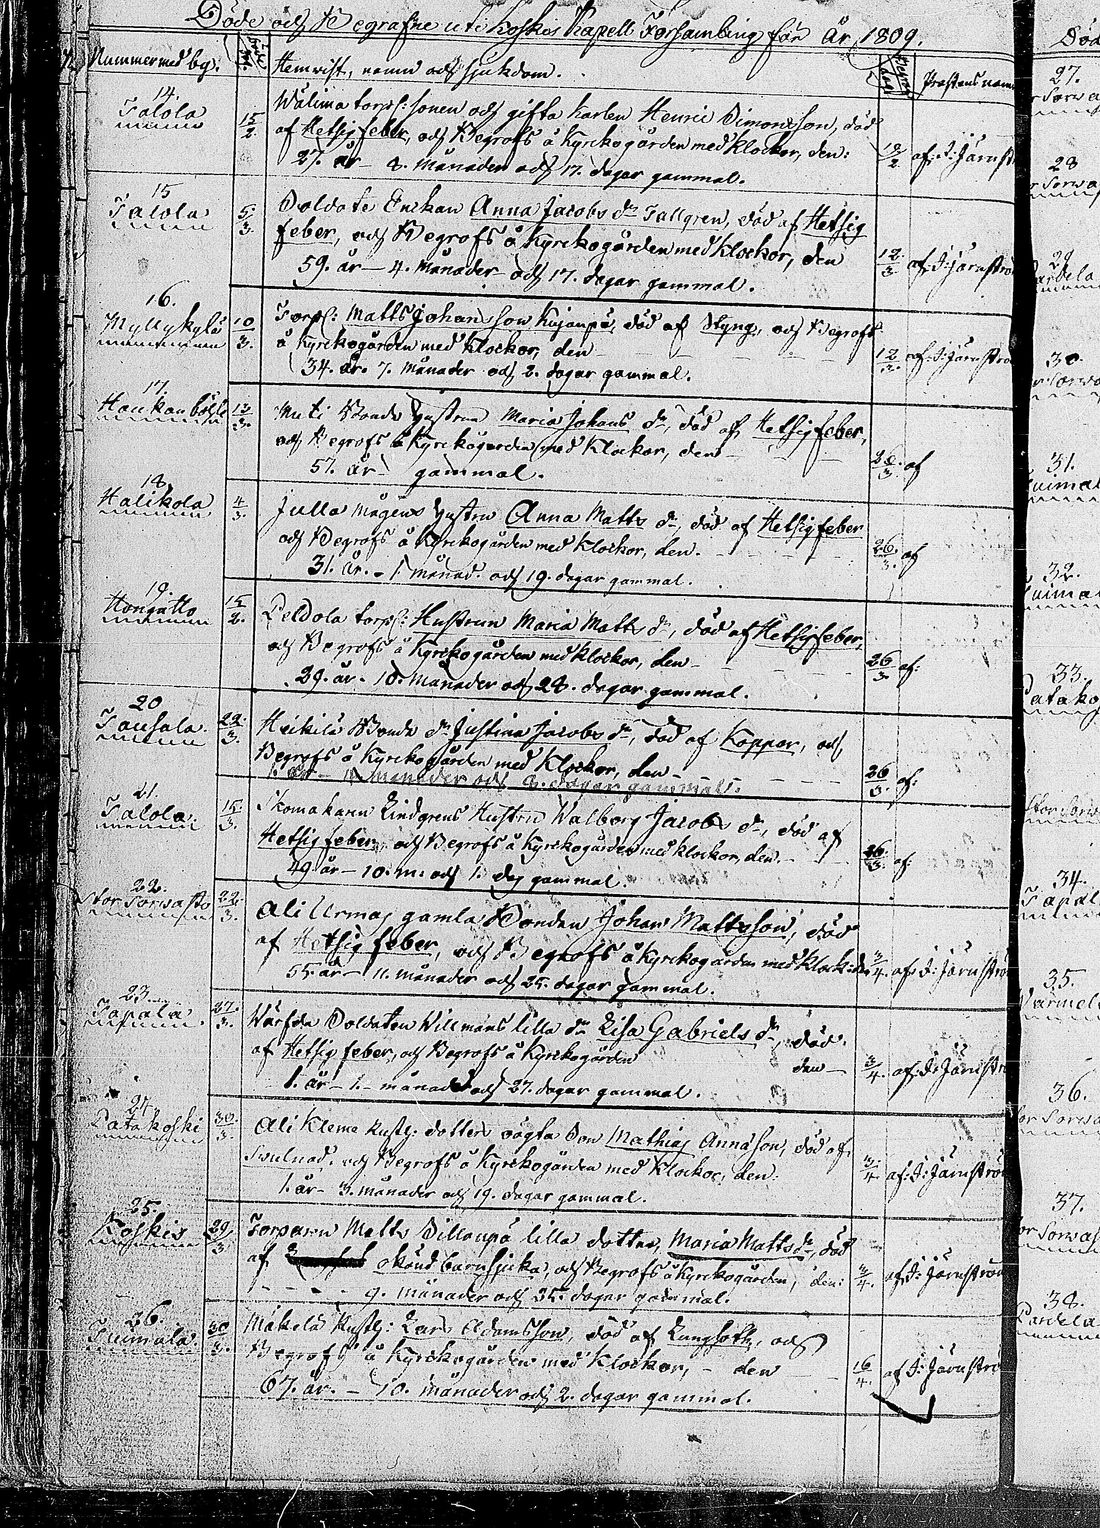 Döde och Begrafne uti Koskis Kapell Församling för År 1809.
Nummer med by. Hemvist, namn och sjukdom. Prestens namn
14.
Talola 15/2 Wälima torps: sonen och gifta karlen Henric Simonsson, död
af Hetsig feber, och Begrofs å Kyrkogården med Klockor, den: 19/2 af: J: Järnst
27. år – 8. Månader och 17. dagar gammal.
15
Talola 5/3 Soldats Enckan Anna Jacobs dr Tallgren, död af Hetsig
feber, och Begrofs å Kyrkogården med Klockor, den 12/3 af: J: Järnströ
59. år – 4. Månader och 17. dagar gammal.
16.
Myllykylä 10/3. Torps: Matts Johansson Kujanpä, död af Styng, och Begrofs
å Kyrkogården med Klockor, den 12/3. af: J: Järnströ
34. år. 7. Månader och 2. dagar gammal.
17.
13/3. Bonde hustrun Maria Johans dr, död af Hetsig feber,
och Begrofs å Kyrkogården med Klockor, den 26/3. af
57. år gammal.
18.
Halikola 4/3. Julla Mågens hustru Anna Matts dr, död af Hetsig feber
och Begrofs å Kyrkogården med Klockor, den. 26/3. af
31. år. – 1 månad. och 19. dagar gammal.
19.
Hongatto 15/2. Peldola torps: Hustrun Maria Matts dr, död af Hetsig feber,
och Begrofs å Kyrkogården med Klockor, den 26/3 af:
29. år. 10. Månader och 28. dagar gammal.
20
Tausala. 22/3. Heikilä Bonde dr Justina Jacobs dr, död af Koppor, och
Begrofs å Kyrkogården med Klockor, den 26/3. af:
1. år månader och 9. dagar gammal.
21.
Talola. 15/3. Skomakaren Lindgrens Hustru Walborg Jacobs dr, död af
Hetsig feber, och Begrofs å Kyrkogården med Klockor, den. 26/3. af:
49 år – 10. m: och 1. dag gammal.
22.
Stor Sorvasto 22/3. Ali Urmas gamla Bonden Johan Mattsson, död
af Hetsig feber, och Begrofs å Kyrkogården med Klockor 3/4. af: J: Järnströ
55. år – 11. månader och 25. dagar gammal.
23
Tapala. 27/3. Wärfda Soldaten Willmans lilla dr Lisa Gabriels dr, död
af Hetsig feber, och Begrofs å Kyrkogården den 3/4. af: J: Järnströ
1. år – 1. månad och 27. dagar gammal.
24
Patakoski 30/3. Ali Klema hustr: dotters oägta Son Mathias Annason, död af
Svulnad. och Begrofs å Kyrkogården med Klockor, den 3/4 af: J: Järnströ
1. år – 3. månader och 19. dagar gammal.
25.
Koskis 29/3 Torparen Matts Sillanpä lilla dotter, Maria Matts dr, död
af okänd barnsjuka, och Begrofs å Kyrkogården, den: 3/4. af J: Järnströ
9. månader och 25. dagar gammal.
26
Tuimala 30/3. Mäkelä hustr: Lars Adamsson, död af Lungsoth, och
Begrofs å Kyrkogården med Klockor, – den 16/4. af J: Järnströ
67. år. – 10. månader och 2. dagar gammal.
Död
27.
28
29.
30.
31.
32.
33.
34.
35.
36.
37.
38.